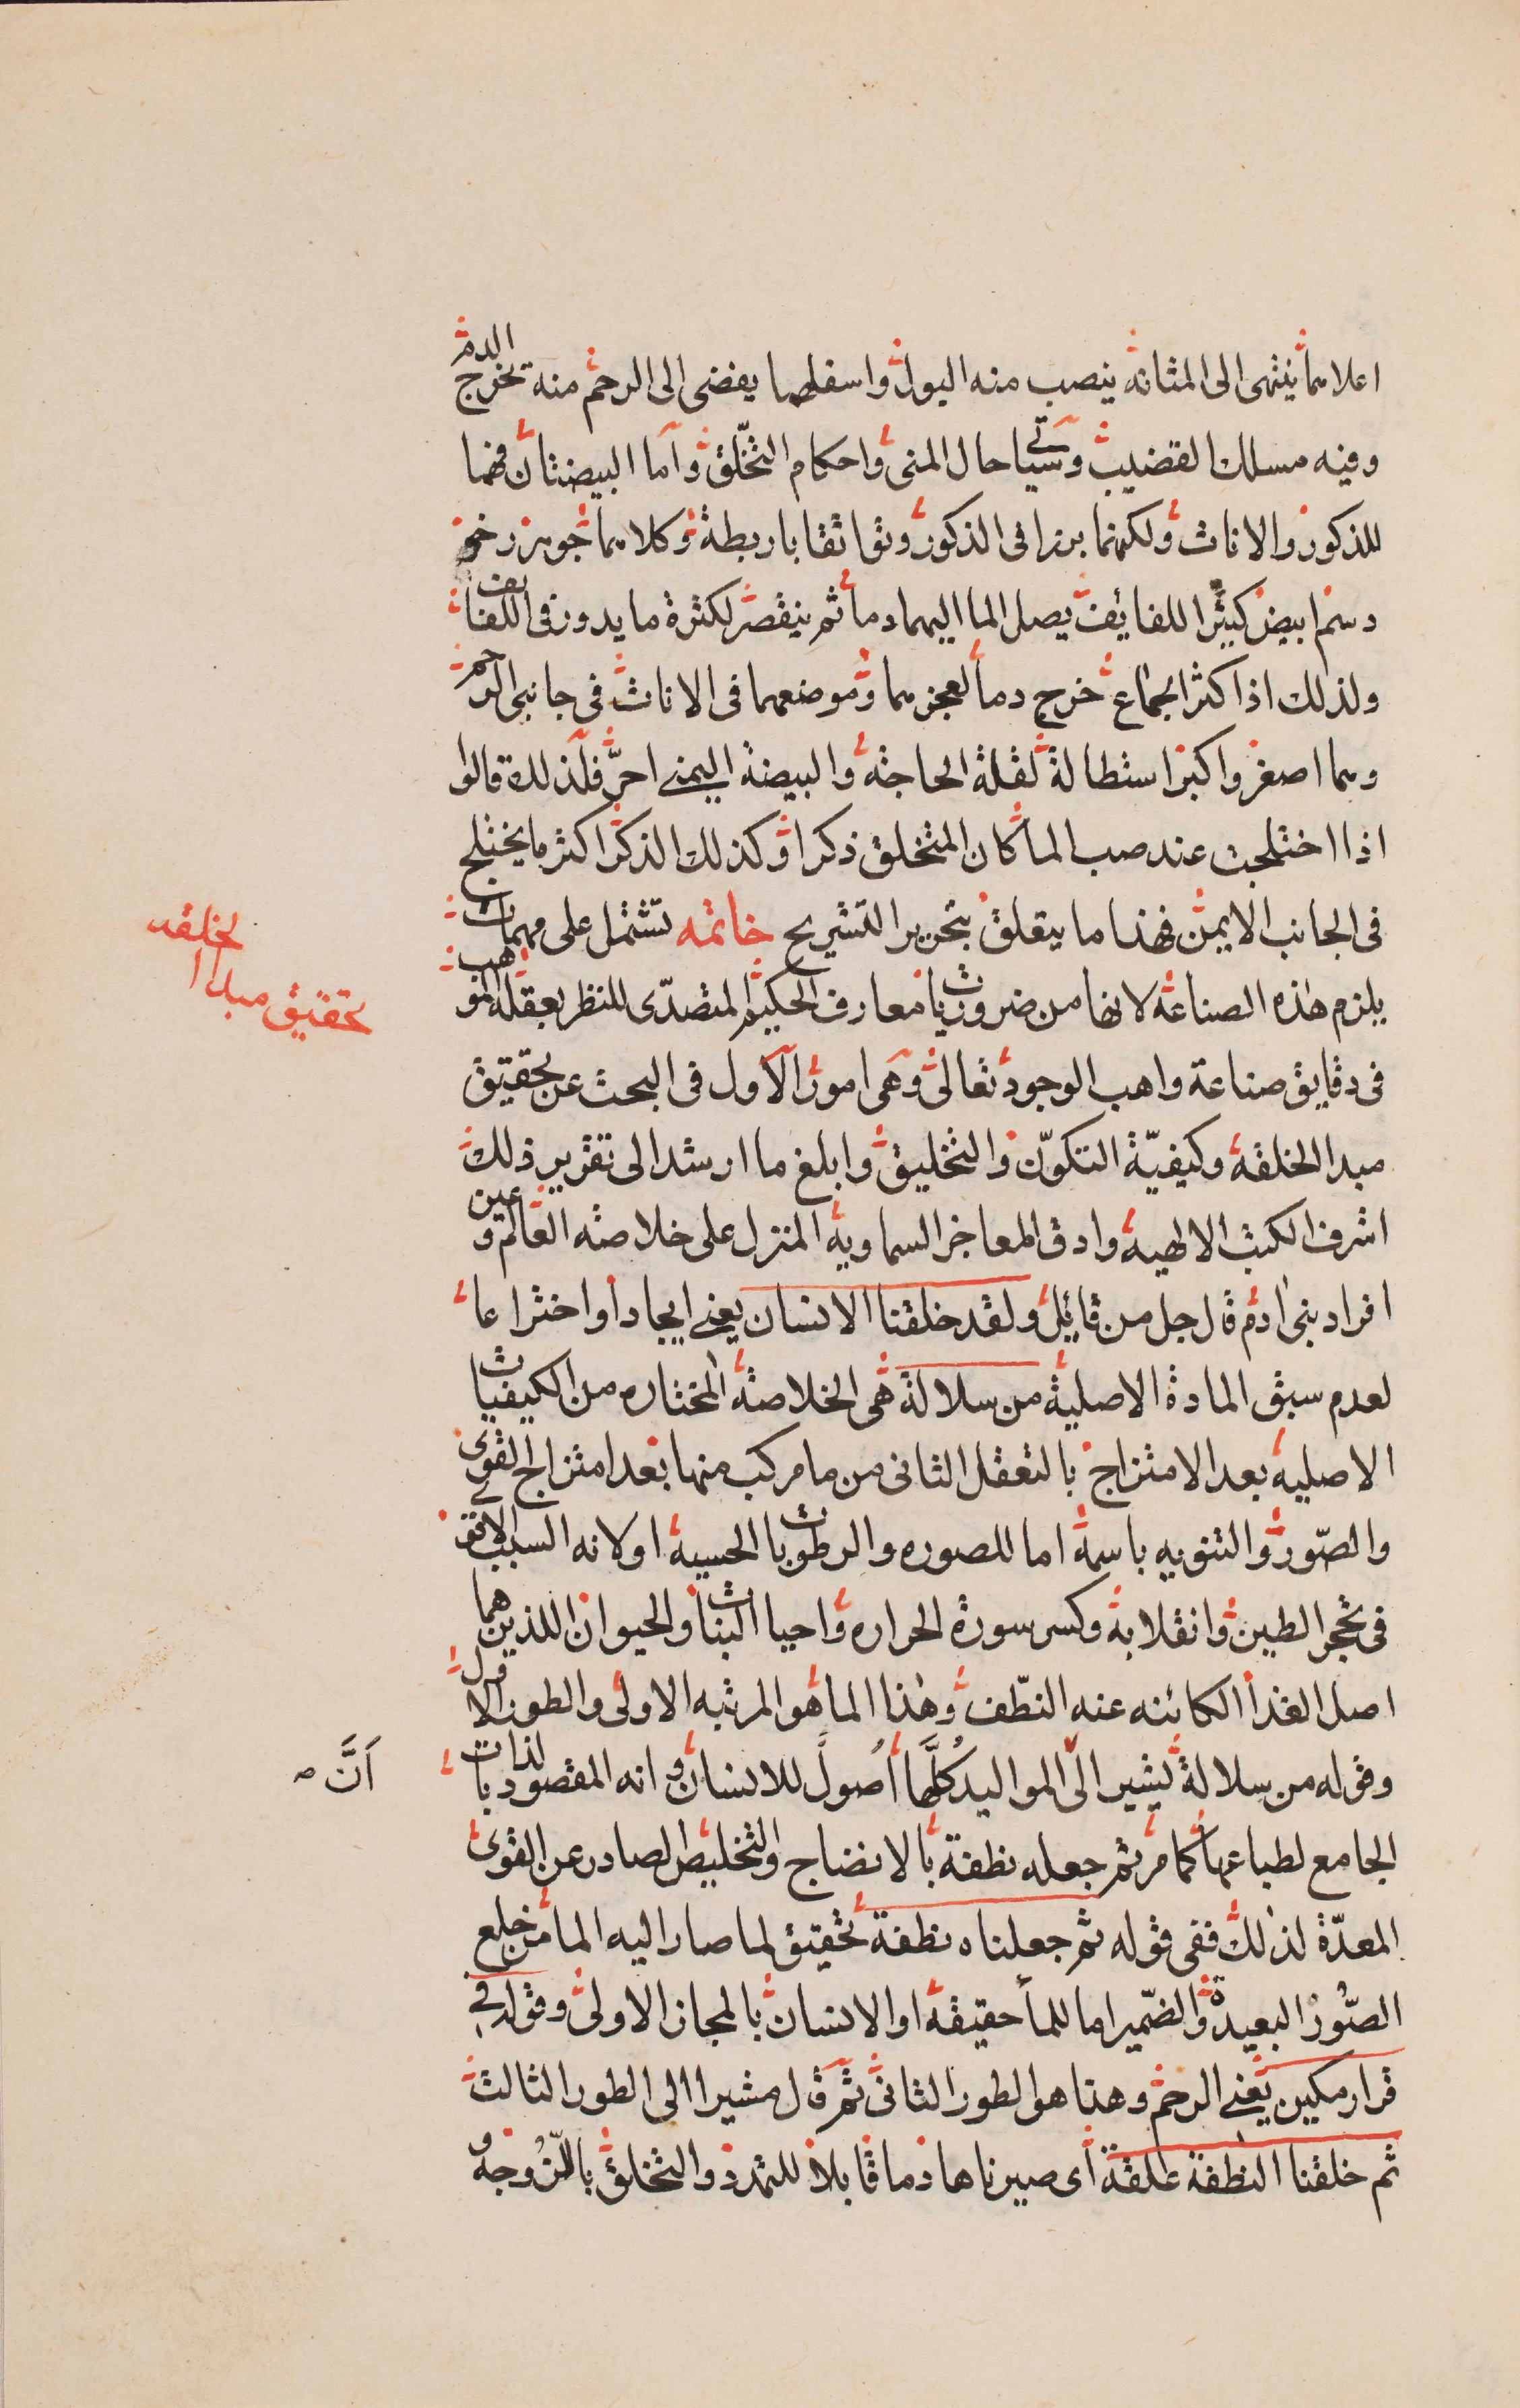 اعلاهما ينتهى الى المثانه ينصب منه البول واسفلهما يفضى الى الرحم منه يخرج الدم
وفيه مسلك القضيب وسيأتى احال المنى واحكام التخلق واما البيضتان فهما
للذكور والاناث ولكنهما برزا فى الذكور وتواثقا باربطة وكلاهما جوهر رخو
دسم ابيض كثير اللفائف يصل الما اليهما دما ثم ينقصر لكثرة ما يدور فى اللفائف
ولذلك اذا كثر الجماع خرج دما لعجزهما وموضعهما فى الاناث فى جانبى الرحم
وهما اصغر واكبر استطالة لقلة الحاجه والبيضه اليمنى احر فلذلك قالوا
اذا اختلجت عند صب الما كان المتخلق ذكرا وكذلك الذكر اكثر ما يختلج
فى الجانب الايمن فهذا ما يتعلق بتحرير التشريح خاتمه تشتمل على مهمات
يلزم هذه الصناعه لانها من ضروريات معارف الحكيم المتصدى للنظر بعقله الموهب
فى دقايق صناعة واهب الوجود تعالى وهى امور الاول فى البحث عن تحقيق
مبدا الخلقه وكيفيّة التكوّن والتخليق وابلغ ما ارشد الى تقرير ذلك
اشرف الكتب الالهيه وادق المعاجز السماويه المنزل على خلاصه العالم وعين
افراد بنى ادم قال جل من قائل ولقد خلقنا الانسان يعنى ايجادا واختراعا
لعدم سبق المادة الاصلية من سلالة هى الخلاصة المختاره من الكيفيات
الاصليه بعد الامتزاج بالتعقل الثانى من ما مركب منها بعد امتزاج القوى
والصّور والتنويه باسمه اما للصوره والرطوبات الحسيه او لانه السبب الاقوى
فى تحجر الطين وانقلابه وكسر سورة الحراره واحيا النبات والحيوان اللذين هما
اصل الغذا الكائنه عنه النطّف وهذا الما هو المرتبه الاولى والطور الاول
وقوله من سلالة يشير الى المواليد كلّها اصول للانسان وانه المقصود بالذات
الجامع لطباعها كما مر ثم جعله نطفة بالانضاج والتخليص الصادر عن القوى
المعدّة لذلك ففى قوله ثم جعلناه نطفة تحقيق لما صار اليه الما من خلع
الصّور البعيدة والضّمير اما للما حقيقه او الانسان بالمجاز الاولى وقوله فى
قرار مكين يعنى الرحم وهذا هو الطور الثانى ثم قال مشيرا الى الطور الثالث
ثم خلقنا النطفة علقة اى صيرناها دما قابلا للتمدد والتخلق باللّزوجه و
تحقيق مبدا الخلقه
اَنَّ